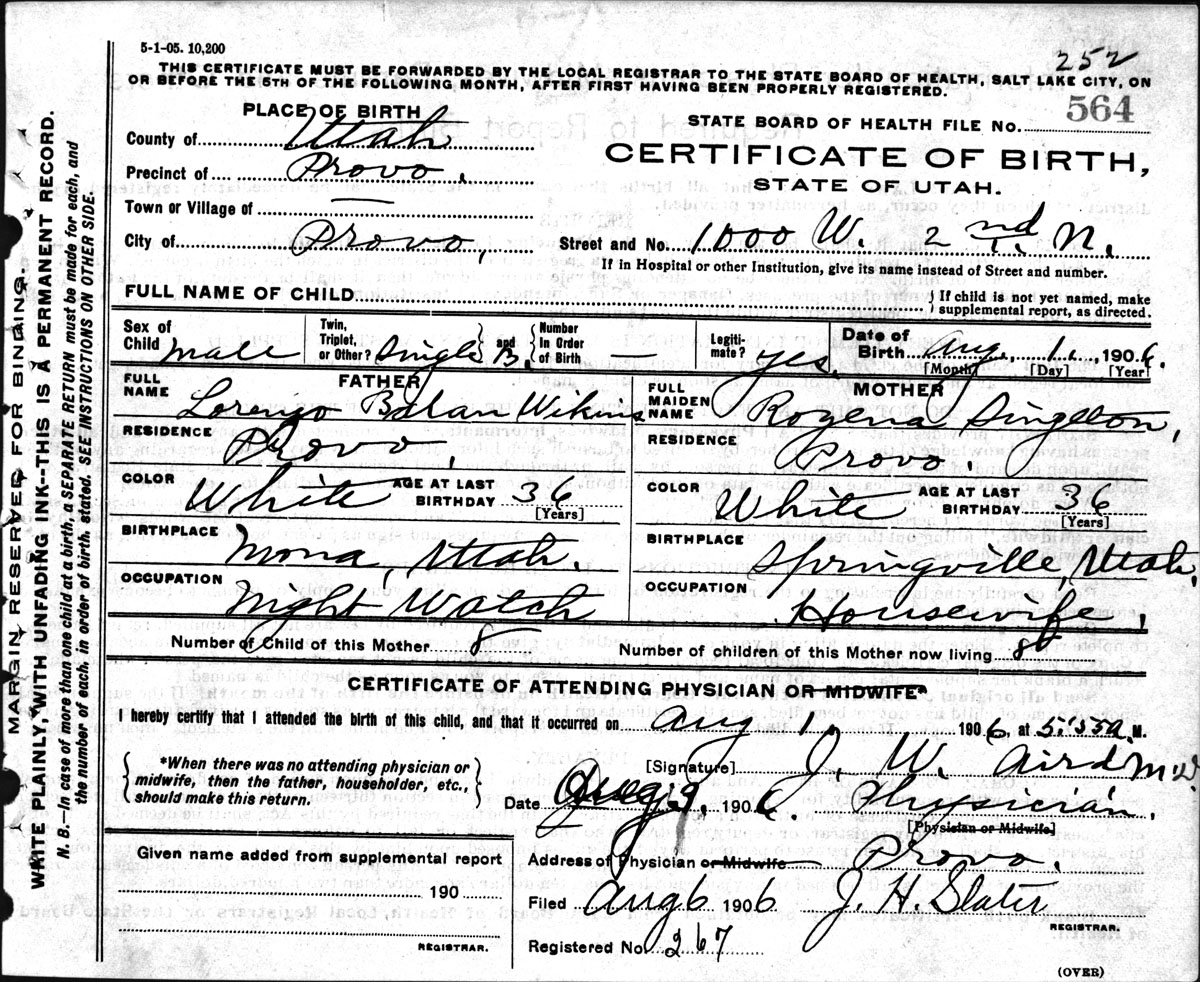 5-1-05. 10,200
252
THIS CERTIFICATE MUST BE FORWARDED BY THE LOCAL REGISTRAR TO THE STATE BOARD OF HEALTH, SALT LAKE CITY, ON
OR BEFORE THE 5TH OF THE FOLLOWING MONTH, AFTER FIRST HAVING BEEN PROPERLY REGISTERED.
PLACE OF BIRTH
STATE BOARD OF HEALTH FILE No. 564
County of Utah
CERTIFICATE OF BIRTH,
Precinct of Provo,
STATE OF UTAH.
Town or Village of —
City of Provo,
Street and No. 1000 W. 2nd St. N.
If in Hospital or other Institution, give its name instead of Street and number.
FULL NAME OF CHILD
{ If child is not yet named, make
supplemental report, as directed.
Sex of Child male
Twin, Triplet, or Other? Single and B.
Number In Order of Birth —
Legitimate? yes.
Date of Birth Aug. 1. 1906.
[Month] [Day] [Year]
FATHER
FULL NAME Lorenzo Balan Wikins
RESIDENCE Provo,
COLOR White AGE AT LAST BIRTHDAY 36
[Years]
BIRTHPLACE Mona, Utah.
OCCUPATION Night Watch
MOTHER
FULL MAIDEN NAME Rogena Singleton,
RESIDENCE Provo,
COLOR White AGE AT LAST BIRTHDAY 36
[Years]
BIRTHPLACE Springville, Utah.
OCCUPATION Housewife,
Number of Child of this Mother 8
Number of children of this Mother now living 8
CERTIFICATE OF ATTENDING PHYSICIAN OR MIDWIFE*
I hereby certify that I attended the birth of this child, and that it occurred on Aug 1 1906, at 5:55 a. M.
{ *When there was no attending physician or
midwife, then the father, householder, etc.,
should make this return. }
[Signature] J. W. Aird
Date Aug 9, 1906. Physician.
[Physician or Midwife]
Given name added from supplemental report
190
REGISTRAR.
Address of Physician or Midwife Provo.
Filed Aug 6 1906 J. H. Slater
REGISTRAR.
Registered No. 267
(OVER)
MARGIN RESERVED FOR BINDING.
WRITE PLAINLY, WITH UNFADING INK--THIS IS A PERMANENT RECORD.
N. B.—In case of more than one child at a birth, a SEPARATE RETURN must be made for each, and
the number of each, in order of birth, stated. SEE INSTRUCTIONS ON OTHER SIDE.